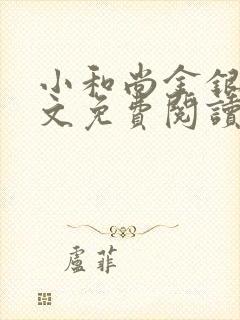 小和尚金銀
文免費閱讀
盧菲